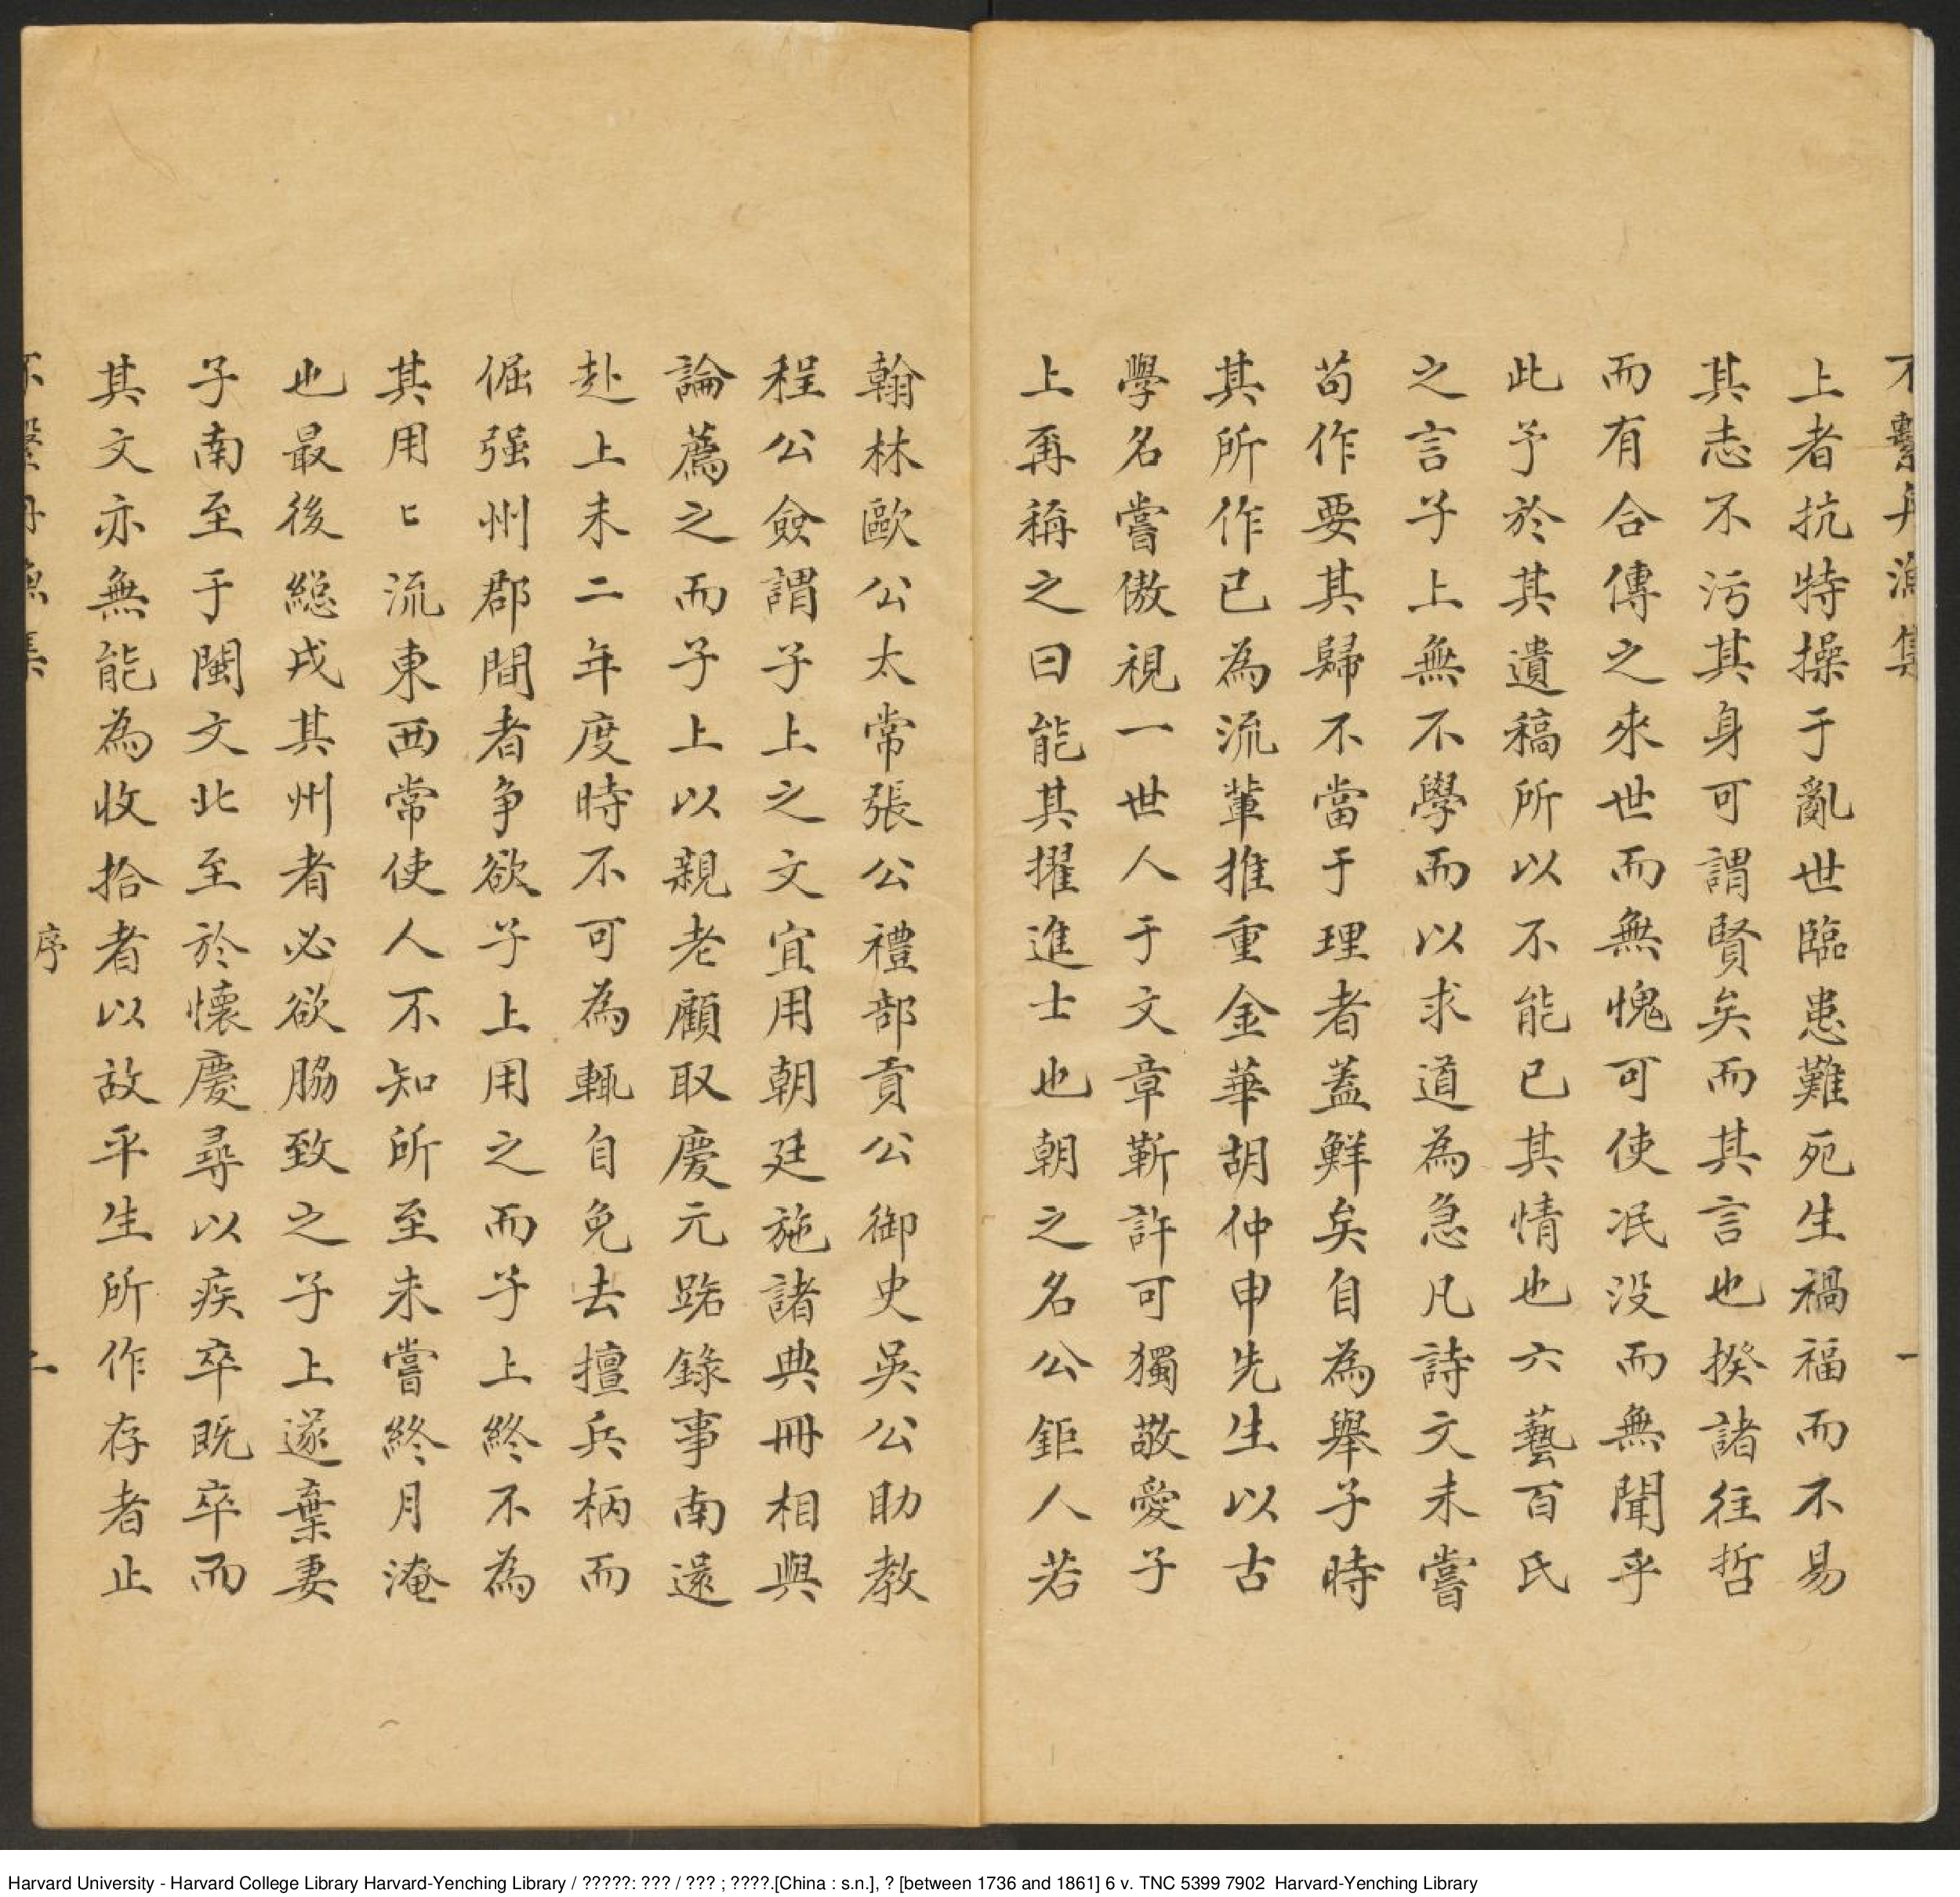 不繫舟漁集
一
上者抗特操于亂世臨患難死生禍福而不易
其志不污其身可謂賢矣而其言也揆諸往哲
而有合傳之來世而無愧可使泯没而無聞乎
此予於其遺稿所以不能已其情也六藝百氏
之言子上無不學而以求道為急凡詩文未嘗
苟作要其歸不當于理者蓋鮮矣自為舉子時
其所作已為流輩推重金華胡仲申先生以古
學名嘗傲視一世人于文章靳許可獨敬愛子
上再稱之曰能其擢進士也朝之名公鉅人若
翰林歐公太常張公禮部貢公御史吳公助教
程公僉謂子上之文宜用朝廷施諸典冊相與
論薦之而子上以親老顧取慶元路錄事南還
赴上未二年度時不可為輒自免去擅兵柄而
倔强州郡間者争欲子上用之而子上終不為
其用〻流東西常使人不知所至未嘗終月淹
也最後総戎其州者必欲脇致之子上遂棄妻
子南至于閩文北至於懐慶尋以疾卒既卒而
其文亦無能為收拾者以故平生所作存者止
不繫舟漁集
序
二
Harvard University - Harvard College Library Harvard-Yenching Library / ?????: ??? / ??? ; ????.[China : s.n.], ? [between 1736 and 1861] 6 v. TNC 5399 7902 Harvard-Yenching Library